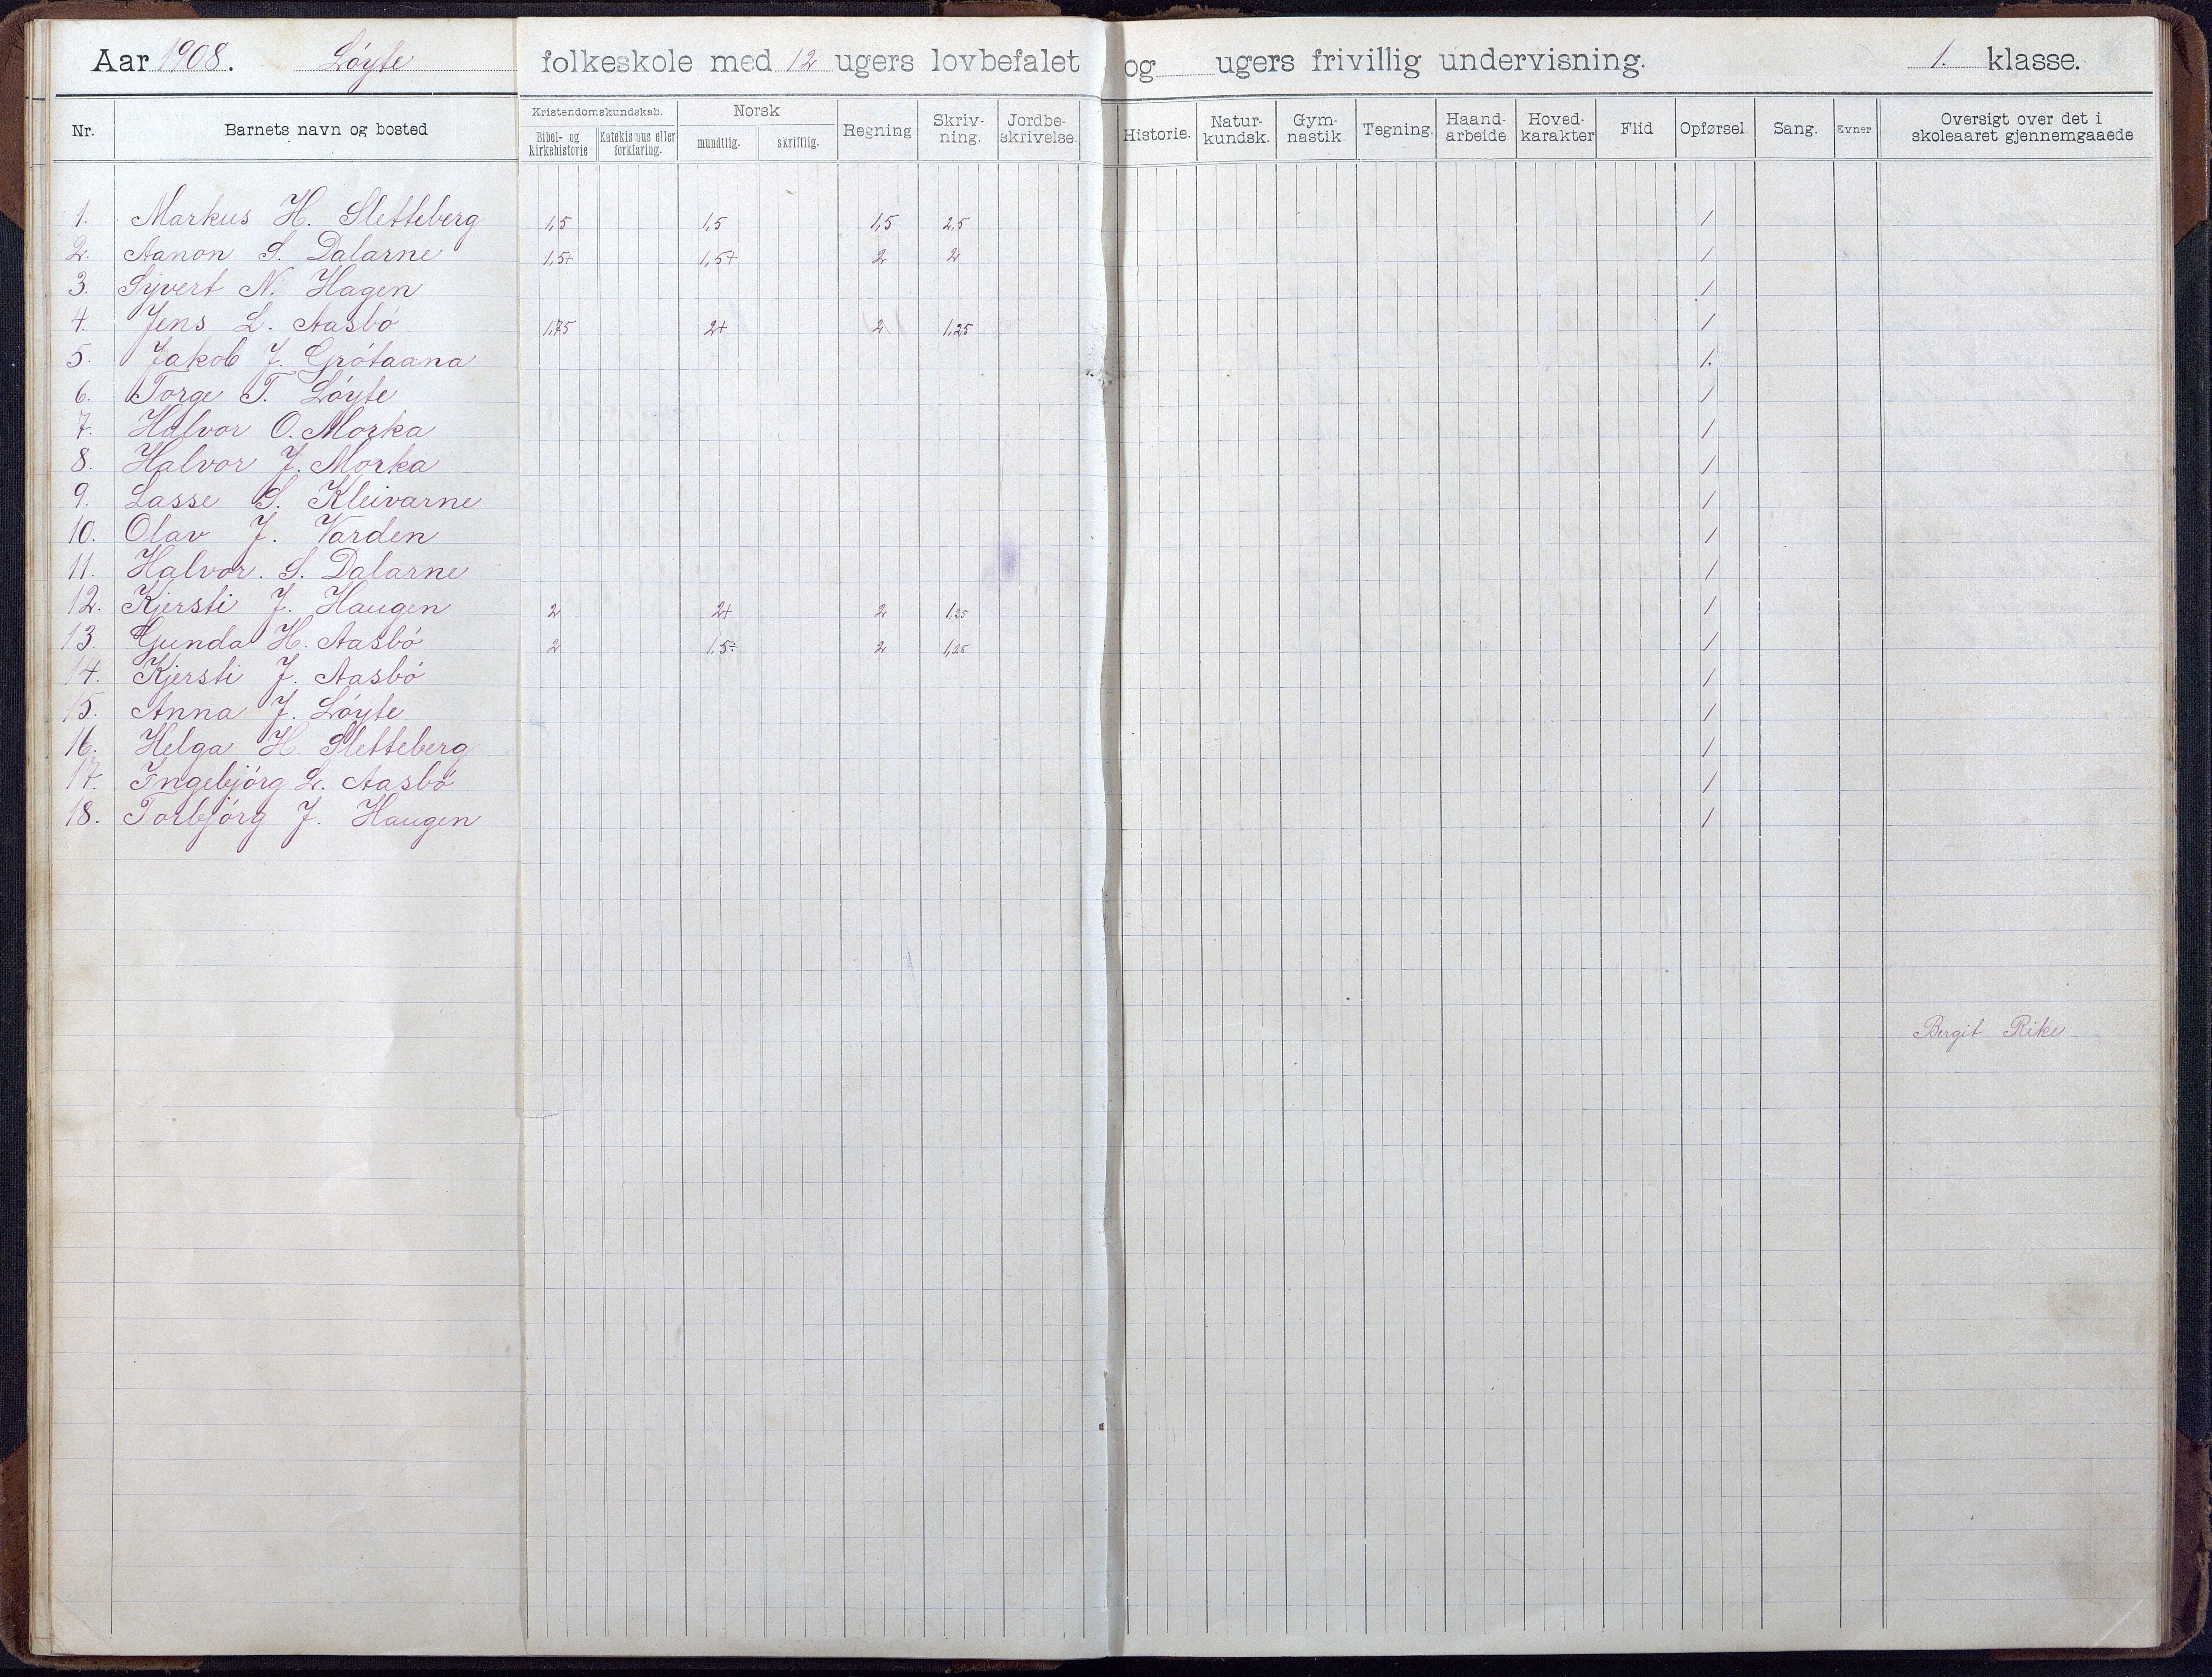 Aar 1908. Löyte folkeskole med 12 ugers lovbefalet og ugers frivillig undervisning. 1. klasse.
Nr. Barnets navn og bosted Kristendomskundskab. Bibel- og kirkehistorie Katekismus eller forklaring. Norsk mundtlig. skriftlig. Regning Skriv-ning. Jordbe-skrivelse. Historie. Natur-kundsk. Gym-nastik Tegning. Haand-arbeide Hoved-karakter Flid Opførsel. Sang. Evner Oversigt over det i skoleaaret gjennemgaaede
1. Markus H. Sletteberg 1,5 1,5 1,5 2,5 1
2. Aanon S. Dalarne 1,5+ 1,5+ 2 2 1
3. Syvert N. Hagen 1
4. Jens L. Aasbö 1,75 2+ 2 1,25 1
5. Jakob J. Grötaana 1.
6. Torge T. Löyte 1
7. Halvor O. Morka 1
8. Halvor J. Morka 1
9. Lasse S. Kleivarne 1
10. Olav J. Varden 1
11. Halvor. S. Dalarne 1
12. Kjersti J. Haugen 2 2+ 2 1,25 1
13. Gunda H. Aasbö 2 1,5÷ 2 1,25 1
14. Kjersti J. Aasbö 1
15. Anna J. Löyte 1
16. Helga H. Sletteberg 1
17. Ingebjörg L. Aasbö 1
18. Torbjörg J. Haugen 1
Bergit Rike